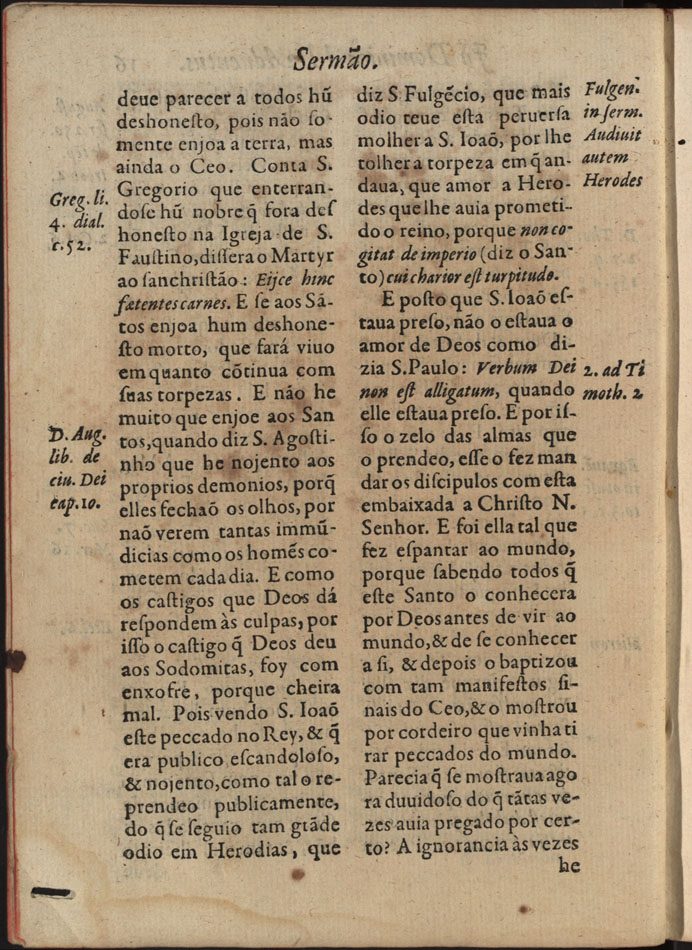 Sermão.
deue parecer a todos hũ
deshonesto, pois não so-
mente enjoa a terra, mas
ainda o Ceo. Conta S.
Gregorio que enterran-
dose hũ nobre q̃ fora des
honesto na Igreja de S.
Faustino, dissera o Martyr
ao sanchristão: Eijce hinc
fætentes carnes. E se aos Sã-
tos enjoa hum deshone-
sto morto, que fará viuo
em quanto cõtinua com
suas torpezas. E não he
muito que enjoe aos San
tos, quando diz S. Agosti-
nho que he nojento aos
proprios demonios, porq̃
elles fechaõ os olhos, por
naõ verem tantas immũ-
dicias como os homẽs co-
metem cada dia. E como
os castigos que Deos dá
respondem às culpas, por
isso o castigo q̃ Deos deu
aos Sodomitas, foy com
enxofre, porque cheira
mal. Pois vendo S. Ioaõ
este peccado no Rey, & q̃
era publico escandoloso,
& nojento, como tal o re-
prendeo publicamente,
do q̃ se seguio tam grãde
odio em Herodias, que
Greg. li.
4. dial.
c. 52.
D. Aug.
lib. de
ciu. Dei
cap. 10.
diz S Fulgẽcio, que mais
odio teue esta peruersa
molher a S. Ioaõ, por lhe
tolher a torpeza em q̃ an-
daua, que amor a Hero-
des que lhe auia prometi-
do o reino, porque non co-
gitat de imperio (diz o San-
to) cui charior est turpitudo.
E posto que S. Ioaõ es-
taua preso, não o estaua o
amor de Deos como di-
zia S. Paulo: Verbum Dei
non est alligatum, quando
elle estaua preso. E por is-
so o zelo das almas que
o prendeo, esse o fez man
dar os discipulos com esta
embaixada a Christo N.
Senhor. E foi ella tal que
fez espantar ao mundo,
porque sabendo todos q̃
este Santo o conhecera
por Deos antes de vir ao
mundo, & de se conhecer
a si, & depois o baptizou
com tam manifestos si-
nais do Ceo, & o mostrou
por cordeiro que vinha ti
rar peccados do mundo.
Parecia q̃ se mostraua ago
ra duuidoso do q̃ tãtas ve-
zes auia pregado por cer-
to? A ignorancia às vezes
he
Fulgen.
in serm.
Audiuit
autem
Herodes
2. ad Ti
moth. 2